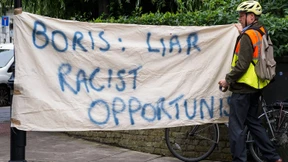 BORIS: LIAR
RACIST
OPPORTUNIS